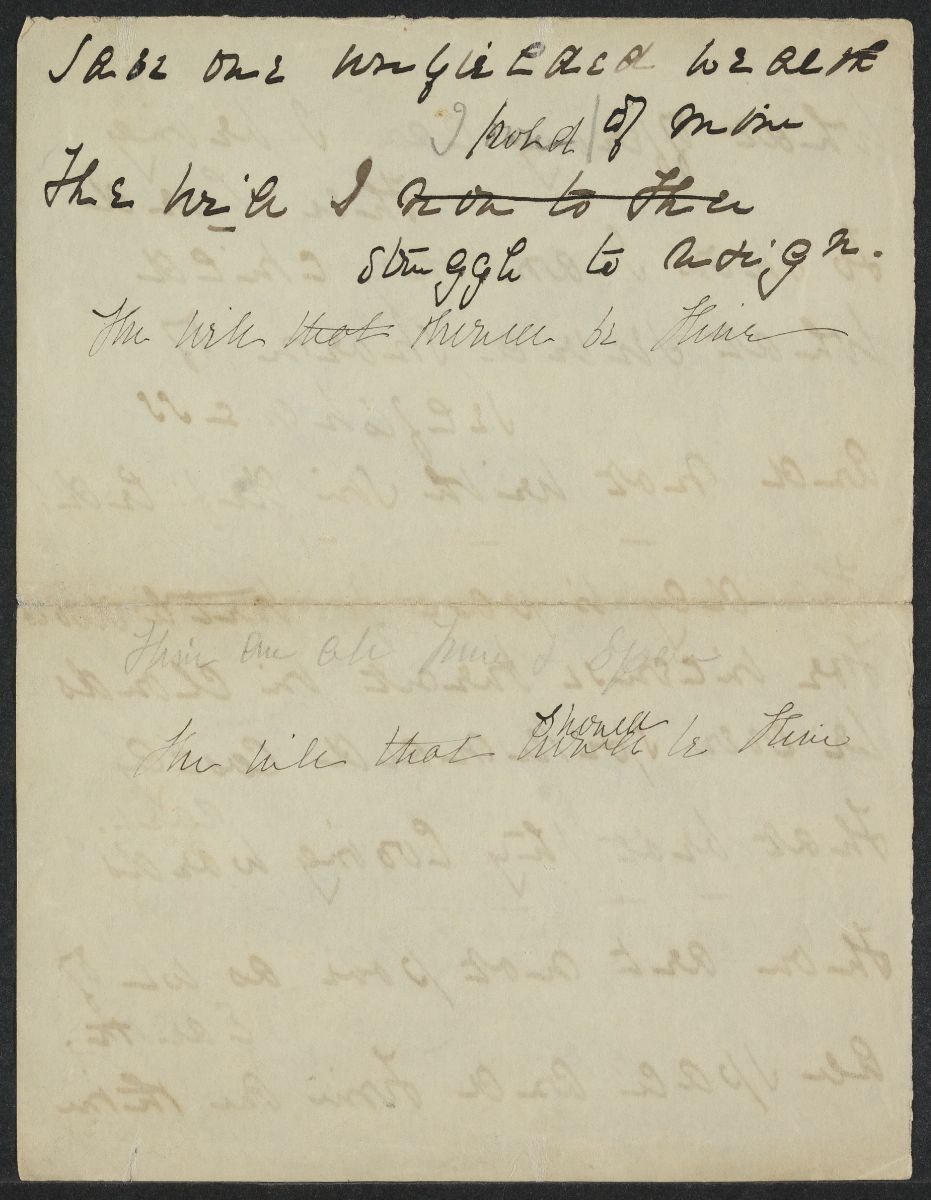 Save one unyielded wealth
hoard of mine
The will I now to Thee
struggle to resign.
The will that should be Thine
Thine are all time & space
should
The will that would be Thine